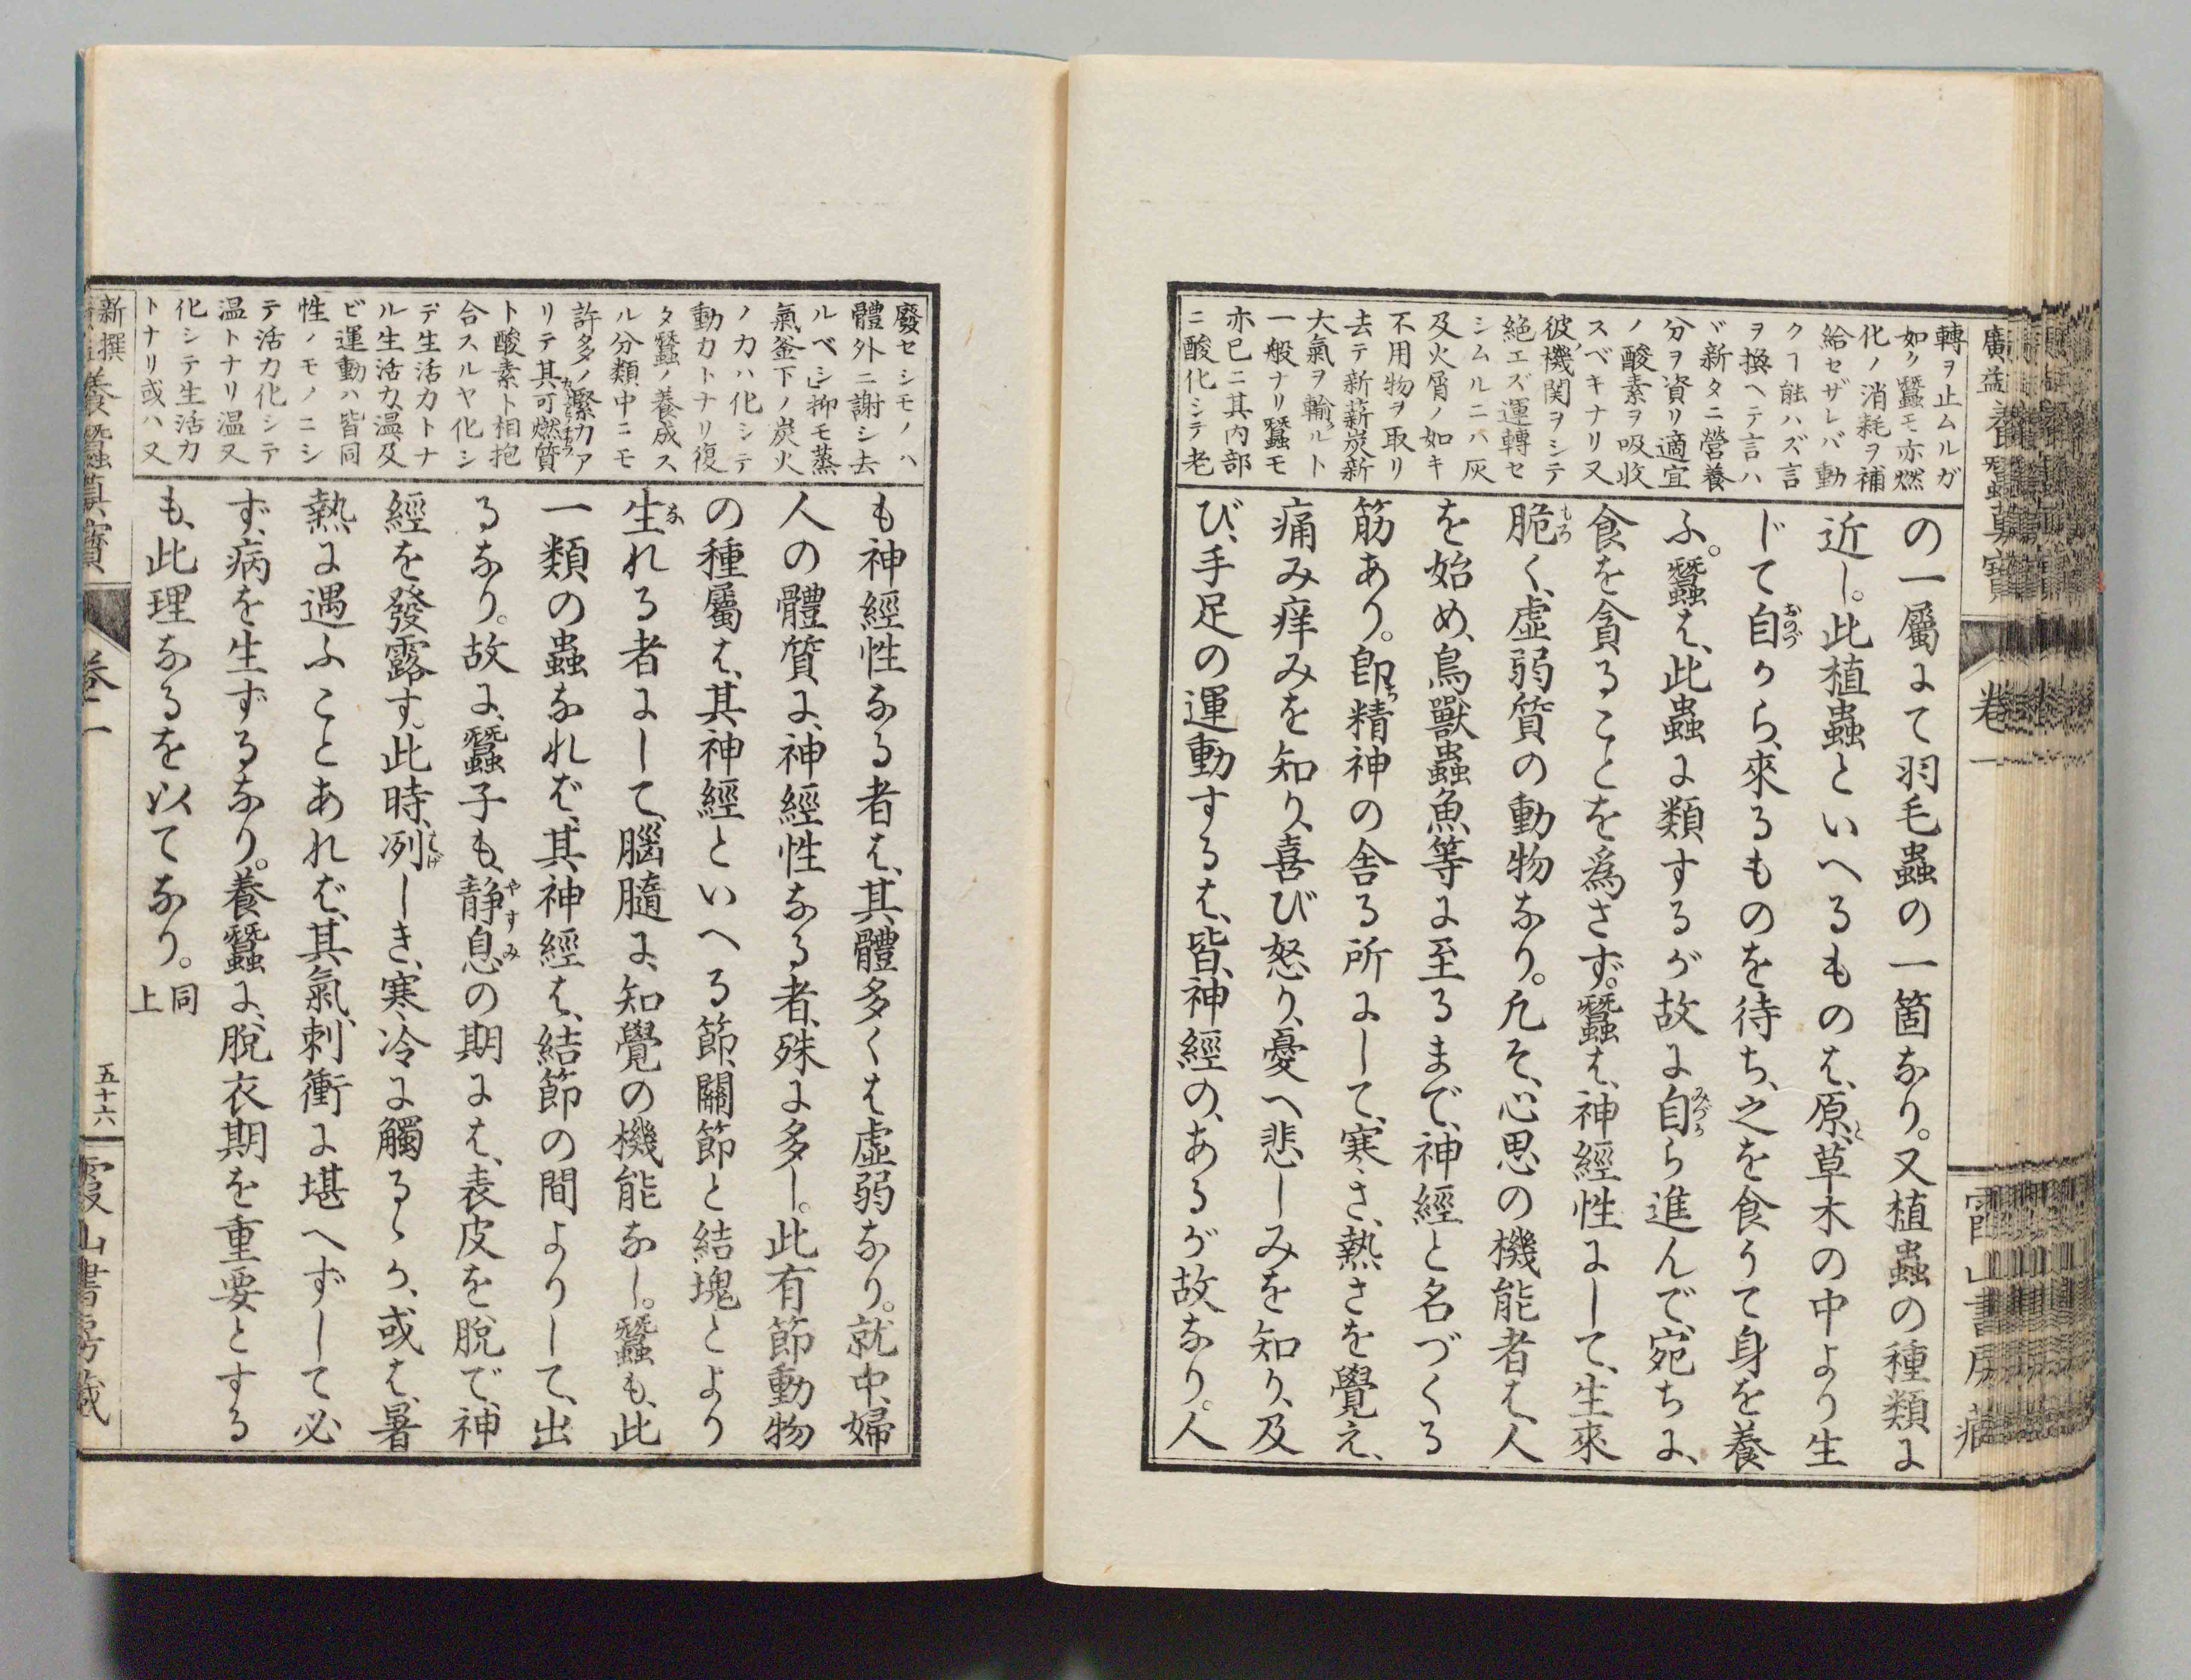 廣益養蠶眞寶
卷一
轉ヲ止ムルガ
如ク蠶モ亦燃
化ノ消耗ヲ補
給セザレバ動
クヿ能ハズ言
ヲ換ヘテ言ハ
ヾ新タニ營養
分ヲ資リ適宜
ノ酸素ヲ吸收
スベキナリ又
彼機関ヲシテ
絶エズ運轉セ
シムルニハ灰
及火屑ノ如キ
不用物ヲ取リ
去テ新薪炭新
大氣ヲ輸ルト
一般ナリ蠶モ
亦已ニ其内部
ニ酸化シテ老
の一屬にて羽毛蟲の一箇なり。又植蟲の種類に
近し。此植蟲といへるものは、原と、草木の中より生
じて自から、來るものを待ち、之を食うて身を養
ふ。蠶は、此蟲に類するが故に自ら進んで、宛ちに、
食を貪ることを爲さず。蠶は、神經性にして、生來
脆く、虚弱質の動物なり。凡そ、心思の機能者は、人
を始め、鳥獸蟲魚等に至るまで、神經と名づくる
筋あり。即ち精神の舎る所にして、寒さ、熱さを覺え、
痛み痒みを知り、喜び怒り、憂へ悲しみを知り、及
び、手足の運動するは、皆、神經の、あるが故なり。人
廢セシモノハ
體外ニ謝シ去
ルベシ抑モ蒸
氣釜下ノ炭火
ノ力ハ化シテ
動力トナリ復
タ蠶ノ養成ス
ル分類中ニモ
許多ノ緊力ア
リテ其可燃質
ト酸素ト相抱
合スルヤ化シ
デ生活力トナ
ル生活力温及
ビ運動ハ皆同
性ノモノニシ
テ活力化シテ
温トナリ温又
化シテ生活力
トナリ或ハ又
も神經性なる者は、其體多くは虚弱なり。就中、婦
人の體質に、神經性なる者、殊に多し。此有節動物
の種屬は、其神經といへる節、關節と結塊とより
生れる者にして、腦髓に、知覺の機能なし。蠶も、此
一類の蟲なれば、其神經は、結節の間よりして、出
るなり。故に、蠶子も、静息の期には、表皮を脱で、神
經を發露す。此時、冽しき、寒冷に觸るゝか、或は、暑
熱に遇ふことあれば、其氣、刺衝に堪へずして必
ず、病を生ずるなり。養蠶に、脱衣期を重要とする
も、此理なるを以てなり。同上
新撰
養蠶眞寶
卷一
五十六
霞山書房藏